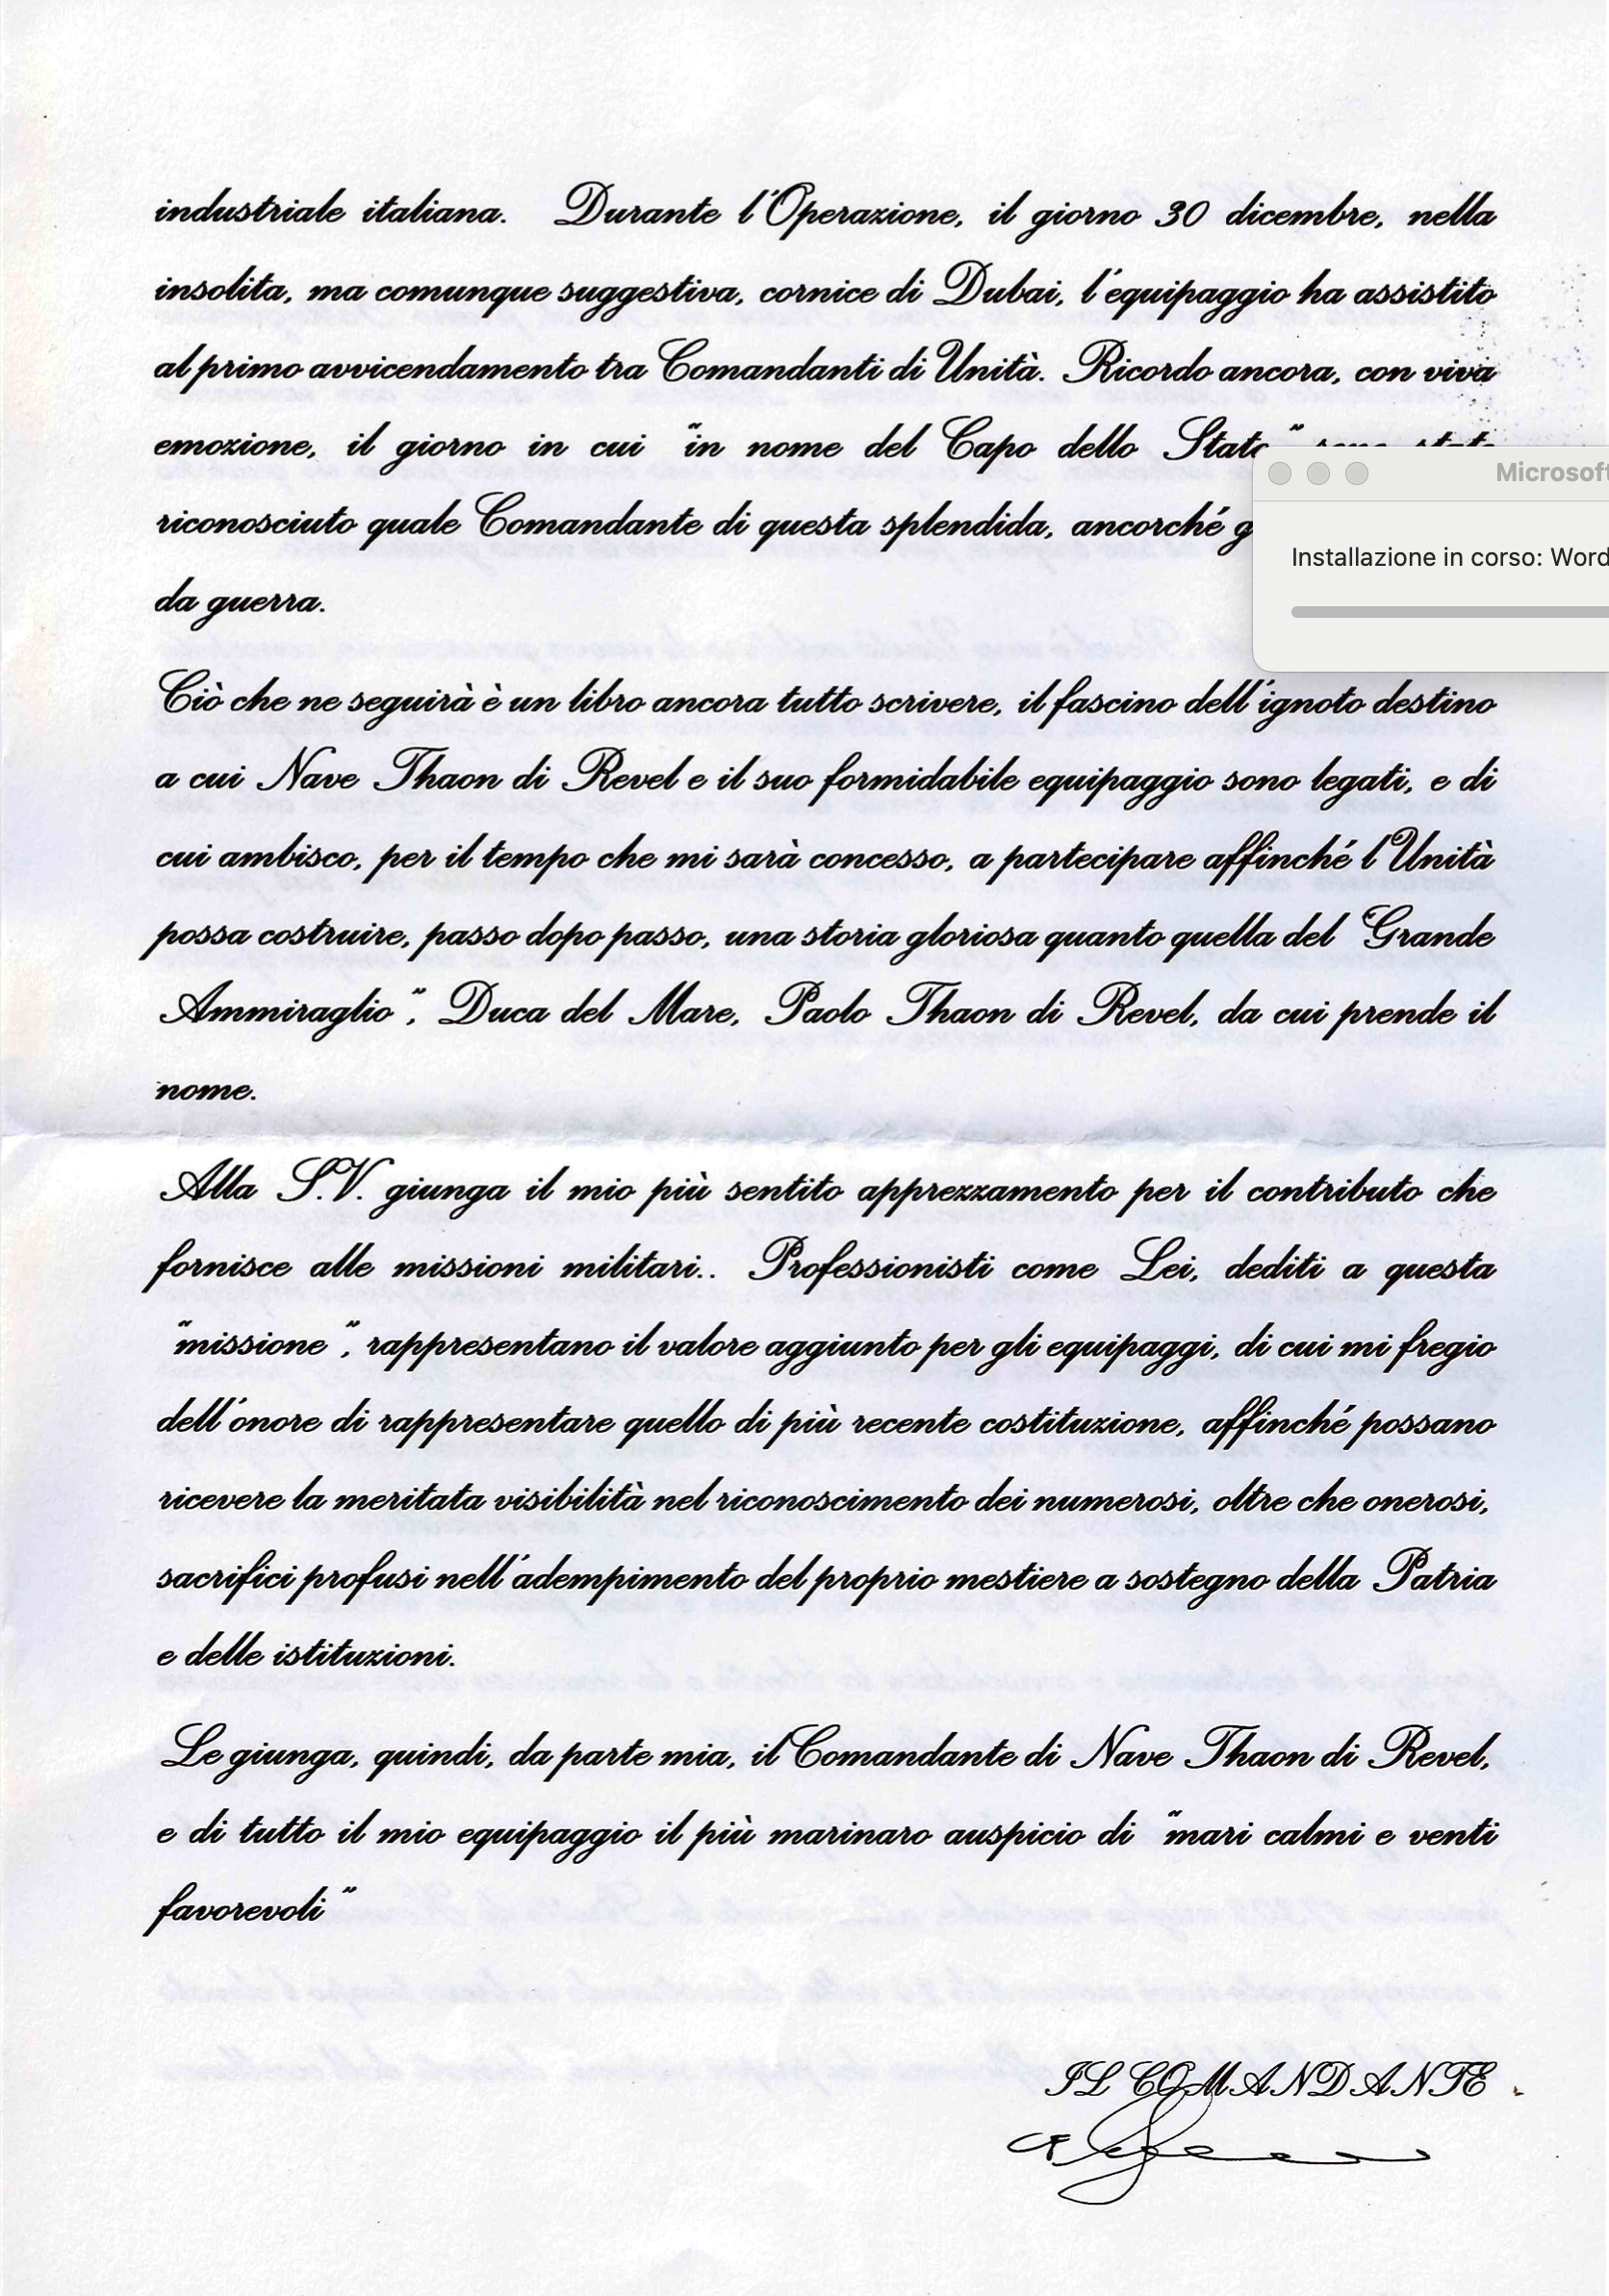 industriale italiana. Durante l'Operazione, il giorno 30 dicembre, nella
insolita, ma comunque suggestiva, cornice di Dubai, l'equipaggio ha assistito
al primo avvicendamento tra Comandanti di Unità. Ricordo ancora, con viva
emozione, il giorno in cui "in nome del Capo dello Stato" sono stato
riconosciuto quale Comandante di questa splendida, ancorché g
Microsoft
Installazione in corso: Word
da guerra.
Ciò che ne seguirà è un libro ancora tutto scrivere, il fascino dell'ignoto destino
a cui Nave Thaon di Revel e il suo formidabile equipaggio sono legati, e di
cui ambisco, per il tempo che mi sarà concesso, a partecipare affinché l'Unità
possa costruire, passo dopo passo, una storia gloriosa quanto quella del "Grande
Ammiraglio", Duca del Mare, Paolo Thaon di Revel, da cui prende il
nome.
Alla S.V. giunga il mio più sentito apprezzamento per il contributo che
fornisce alle missioni militari.. Professionisti come Lei, dediti a questa
"missione", rappresentano il valore aggiunto per gli equipaggi, di cui mi fregio
dell'onore di rappresentare quello di più recente costituzione, affinché possano
ricevere la meritata visibilità nel riconoscimento dei numerosi, oltre che onerosi,
sacrifici profusi nell'adempimento del proprio mestiere a sostegno della Patria
e delle istituzioni.
Le giunga, quindi, da parte mia, il Comandante di Nave Thaon di Revel,
e di tutto il mio equipaggio il più marinaro auspicio di "mari calmi e venti
favorevoli"
IL COMANDANTE